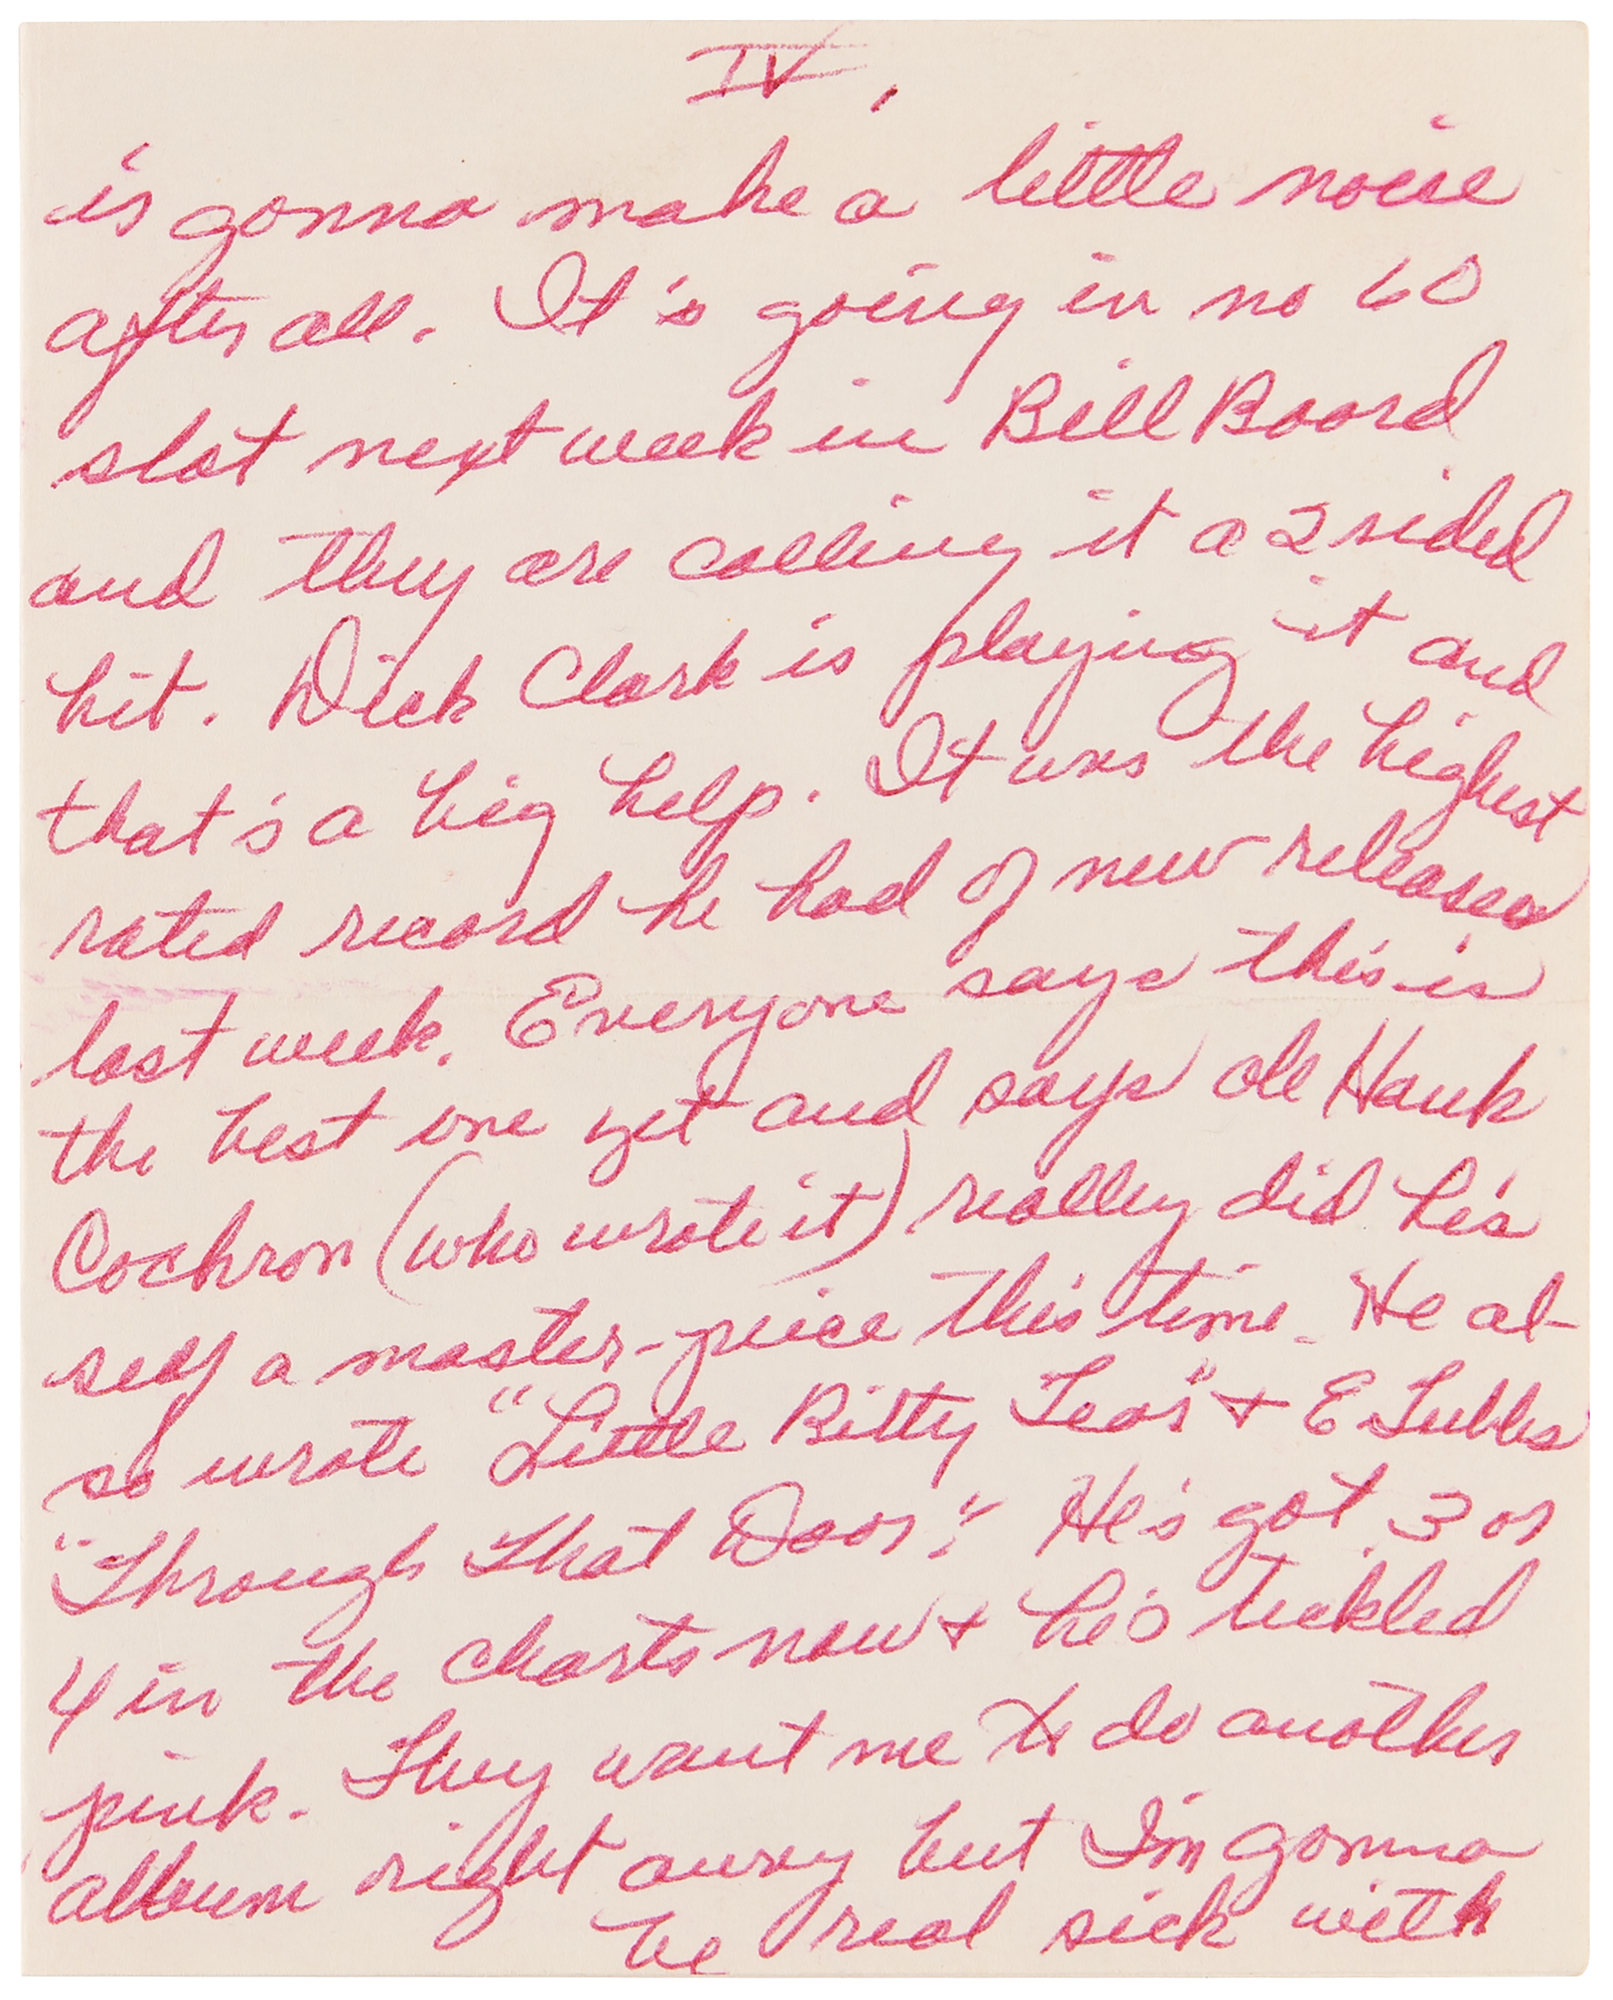 IV,
is gonna make a little noise
after all. It's going in no 60
slot next week in Bill Board
and they are calling it a 2 sided
hit. Dick Clark is playing it and
that's a big help. It was the highest
rated record he had of new releases
last week. Everyone says this is
the best one yet and says ole Hank
Cochron (who wrote it) really did his
self a master-peice this time. He al-
so wrote "Little Bitty Tear" + E. Tubbs
"Through That Door." He's got 3 or
4 in the charts now + he's tickled
pink. They want me to do another
album right away but I'm gonna
be real sick with